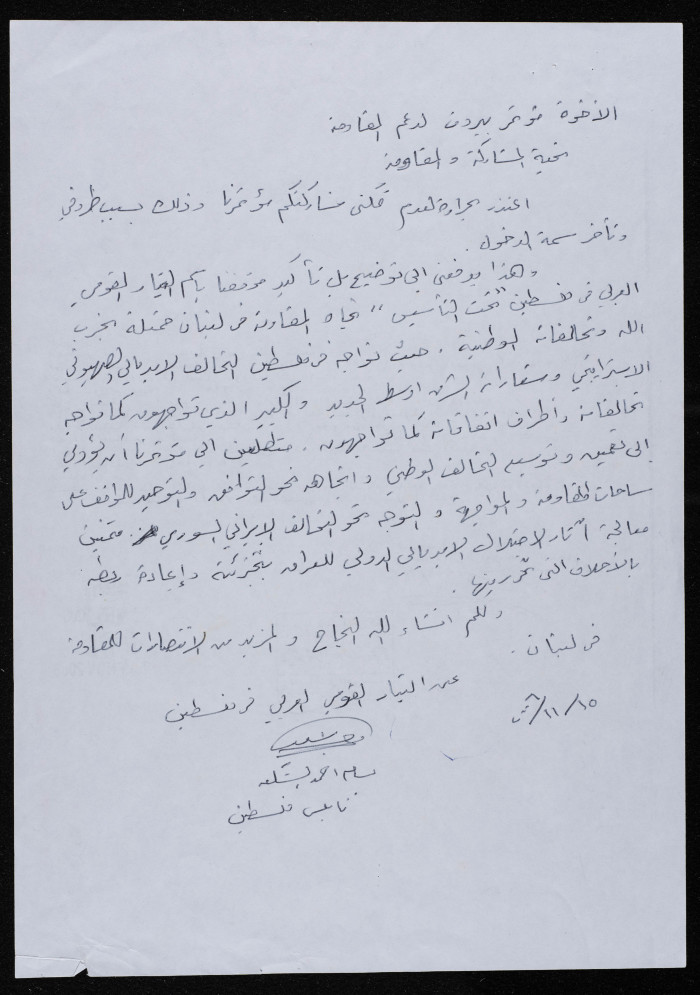 الأخوة مؤتمر بيروت لدعم المقاومة
تحية المشاركة والمقاومة
اعتذر بحرارة لعدم تمكني مشاركتكم مؤتمرنا وذلك بسبب ظروفي
وتأخر سمة الدخول.
وهذا يدفعني الى توضيح بل تأكيد موقفنا باسم التيار القومي
العربي في فلسطين "تحت التأسيس" تجاه المقاومة في لبنان ممثلة بحزب
الله وتحالفاته الوطنية. حيث نواجه في فلسطين التحالف الامبريالي الصهيوني
الاستراتيجي وشعاراته الشرق اوسط الجديد والكبير الذي تواجهون كما نواجه
تحالفاته وأطراف اتفاقاته كما تواجهون. متطلعين الى مؤتمرنا أن يؤدي
الى تعميق وتوسيع التحالف الوطني واتجاهه نحو التوافق والتوحيد للمواقف على
ساحات المقاومة والمواجهة والتوجه نحو التحالف الايراني السوري متمنين
معالجة آثار الاحتلال الامبريالي الدولي للعراق بتجزئته وإعادة ربطه
بالأحلاف التي تحرر منها.
ولكم انشاء الله النجاح والمزيد من الانتصارات للمقاومة
في لبنان.
عن التيار القومي العربي في فلسطين
١٥/١١/
احمد
نابلس فلسطين